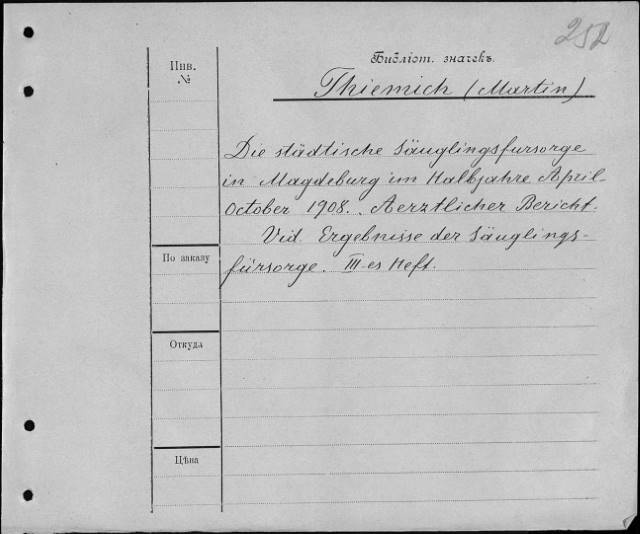 252
Библіот. значекъ.
Инв.
№
Thiemich (Martin)
Die städtische Säuglingsfursorge
in Magdeburg im Halbjahre April-
October 1908. Aerztlicher Bericht.
Vid. Ergebnisse der Säuglings-
fürsorge. III-es Heft.
По заказу
Откуда
Цѣна